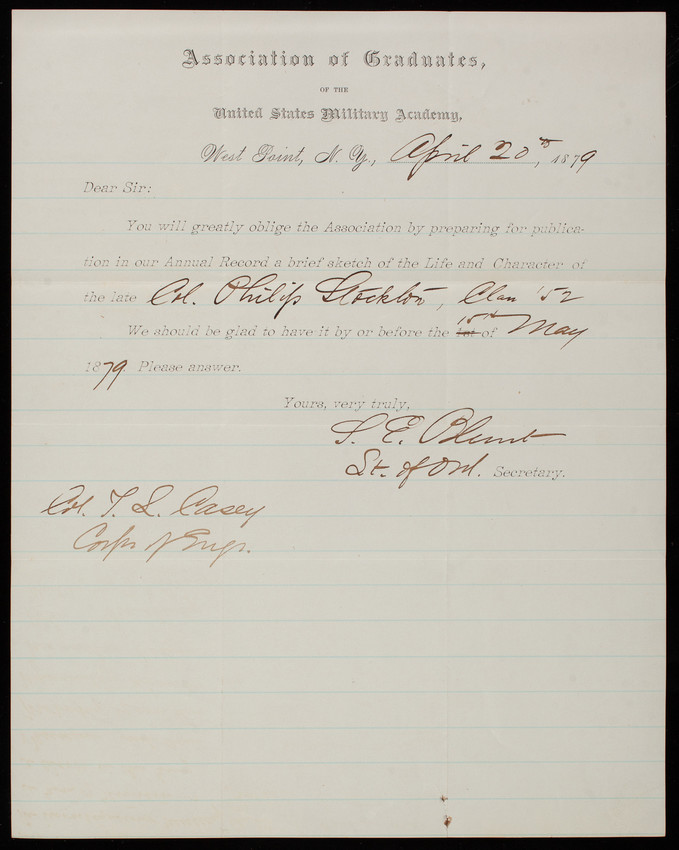 Association of Graduates,
OF THE
United States Military Academy,
West Point, N. Y., April 20th, 1879
Dear Sir:
You will greatly oblige the Association by preparing for publica-
tion in our Annual Record a brief sketch of the Life and Character of
the late Col. Philip Stockton, Class '52
15th
We should be glad to have it by or before the 1st of May
1879 Please answer.
Yours, very truly,
S. E. Blunt
Lt. of Ord. Secretary.
Col. T. L. Casey
Corps of Engs.